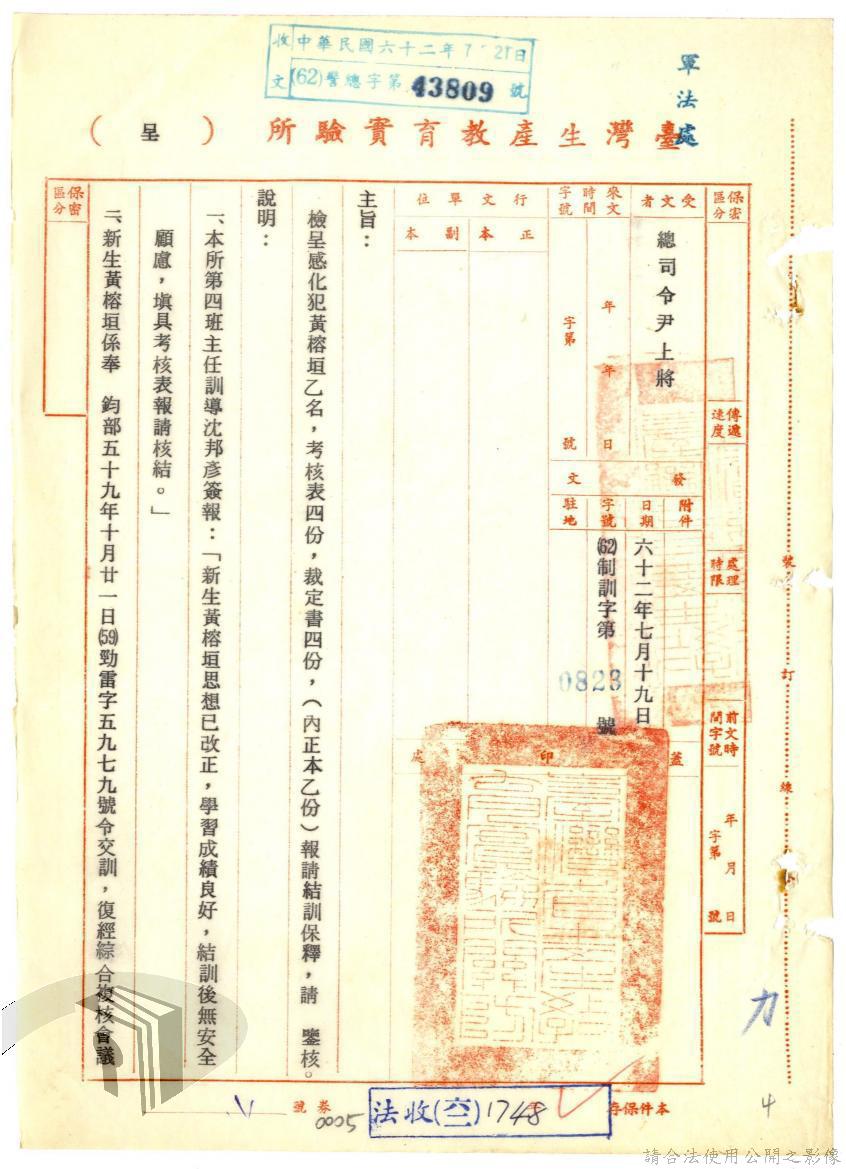 收文 中華民國六十二年7 21日
(62)警總字第43809號
軍法處
臺灣生產教育實驗所 （呈）
保密區分
傳遞速度
處理時限
前文時間字號
年 月 日
字第 號
受文者
總司令尹上將
來文時間字號
年 年 日
字第 號
發文
附件
日期
六十二年七月十九日
字號
(62)制訓字第0823號
駐地
行文單位
正本
副本
蓋印處
主旨：
檢呈感化犯黃榕垣乙名，考核表四份，裁定書四份，（內正本乙份）報請結訓保釋，請 鑒核。
說明：
一、本所第四班主任訓導沈邦彥簽報：「新生黃榕垣思想已改正，學習成績良好，結訓後無安全
顧慮，塡具考核表報請核結。」
二、新生黃榕垣係奉 鈞部五十九年十月廿一日(59)勁雷字五九七九號令交訓，復經綜合複核會議
保密區分
裝
訂
線
力
本件保存
法收(六二)1748
券號
0005
4
請合法使用公開之影像